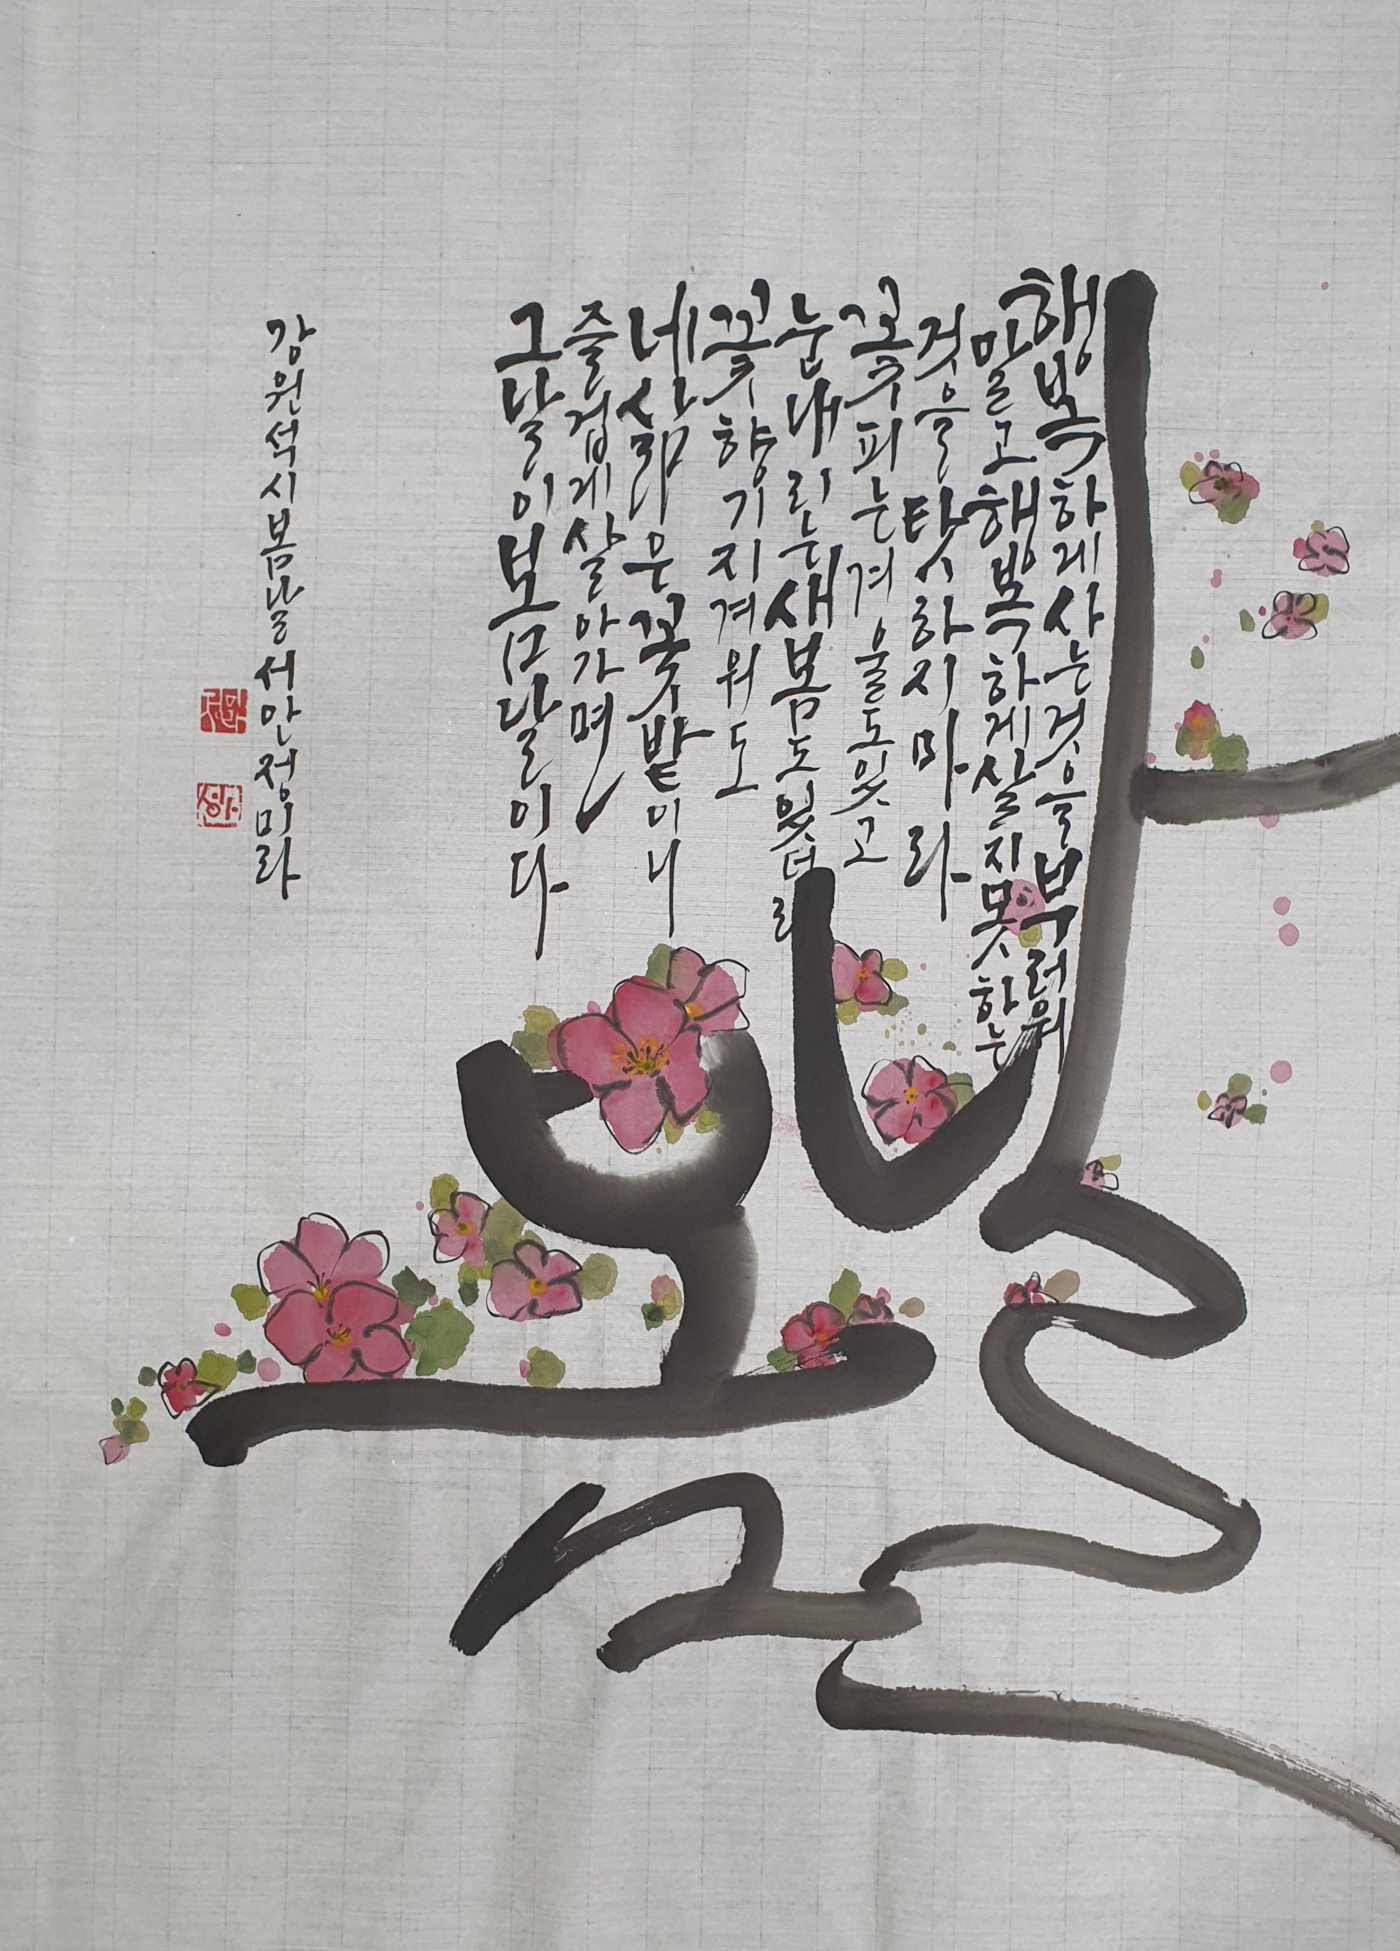 봄날
행복하게사는것을부러워
말고행복하게살지못하는
것을탓하지마라
꽃피는겨울도있고
눈내리는새봄도있더라
꽃향기지겨워도
네삶은꽃밭이니
즐겁게살아가면
그날이봄날이다
강원석시봄날서안정미라